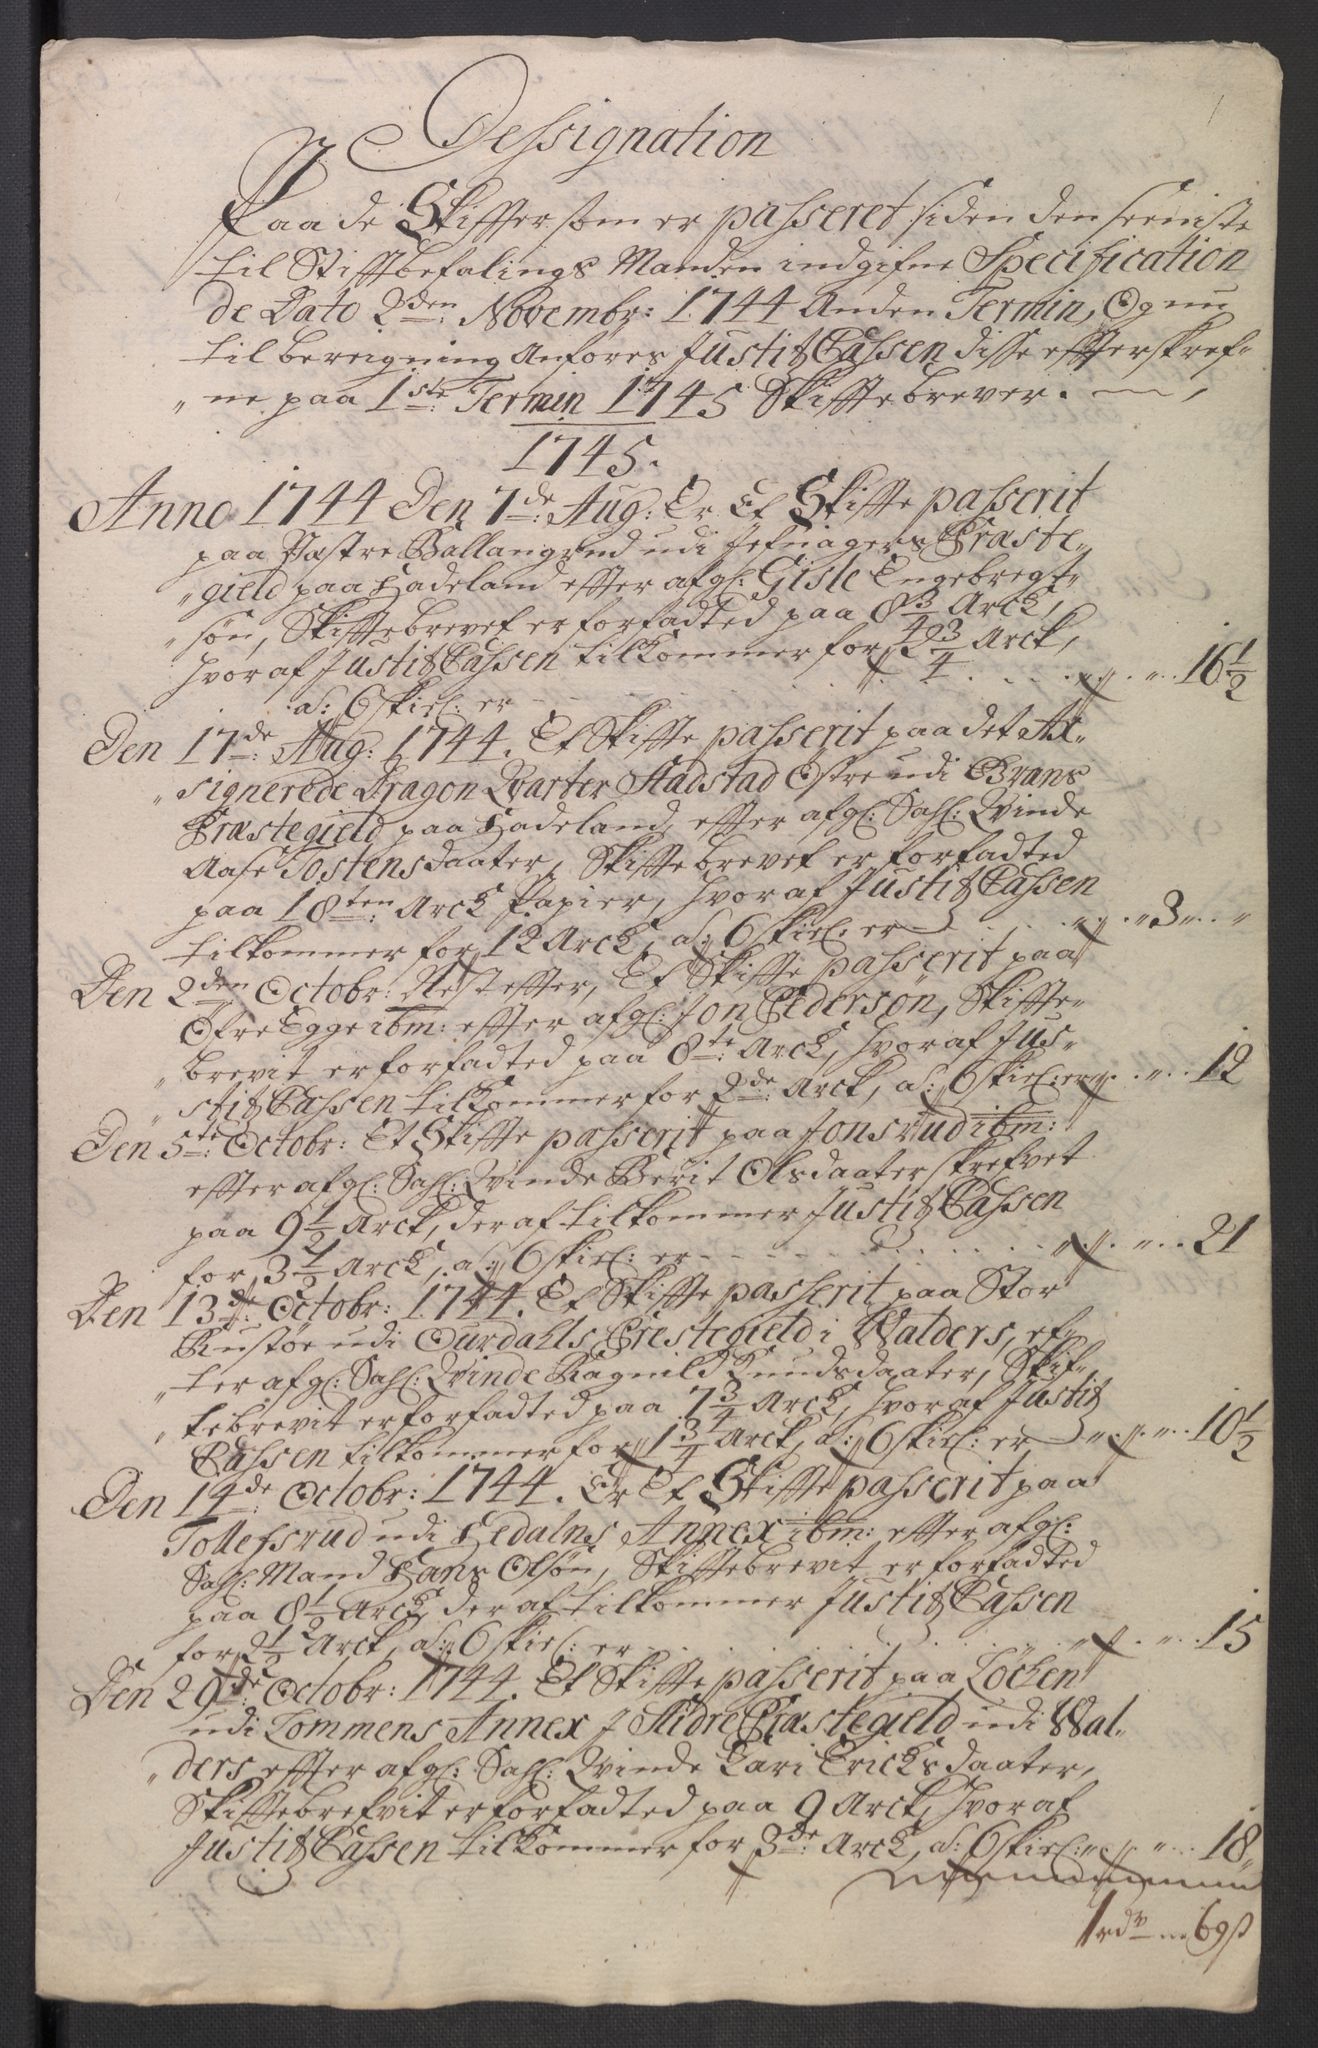 Dessignation
Paa de Skiffter som er passeret siden den seeniste
til Stiftbefalings Manden indgifne Specification
de Dato 2den Novembr: 1744 Anden Termin, Og nu
til bereigning Anføres Justitz Cassen disse effterskref-
"ne paa 1ste Termin 1745 Skifftebrever.
1745.
Anno 1744 Den 7de Aug: Er Et Skiffte passerit
paa Ballangrud udi Jefnagers Præste-
"gield paa Hadeland effter afgl: Gisle Engebregt-
"søn, Skifftebrevet er forfadted paa 8 3/4 Arck,
hvoraf Justitz Cassen tilkommer for 2 3/4 Arck,
a: 6 skiel: er " " 16 1/2
Den 17de Aug: 1744. Et Skiffte passerit paa det
"signerede Dragon Qvarter Stadstad Østre udi Brans
Præstegield paa Hadeland, effter afgl: Sahl: Qvinde
Aase Tostensdaater, Skifftebrevet er forfadted
paa 18ten Arck Papier, hvoraf Justitz Cassen
tilkommer for 12 Arck, a: 6 skiel: er " 3 " "
Den 2den Octobr: Nest effter, Et Skiffte passerit paa
Øfre Egge ibm: effter afgl: Jon Pedersøn, Skiffte-
"brevit er forfadted paa 8te Arck, hvoraf Jus-
"stitz Cassen tilkommer for 2de Arck, a: 6 skiel: er " " 12
Den 5te Octobr: Et Skiffte passerit paa Jonsrud ibm:
effter afgl: Sahl: Qvinde Berit Olsdaater skrefvet
paa 9 1/2 Arck, deraf tilkommer Justitz Cassen
for 3 1/2 Arck, a: 6 skiel: er " " 21
Den 13de Octobr: 1744. Et Skiffte passerit paa Stor
Rustøe udi Ourdahls Prestegield i Walders, ef-
"ter afgl: Sahl: Qvinde Ragnild Knudsdaater, Skif-
"tebrevit er forfadted paa 7 3/4 Arck, hvoraf Justitz
Cassen tilkommer for 1 3/4 Arck, a: 6 skiel: er " " 10 1/2
Den 14de Octobr: 1744. Er Et Skiffte passerit paa
Tollefsrud udi Hedalns Annex ibm: effter afgl:
Sahl: Mand Hans Olsøn, Skifftebrevit er forfadted
paa 8 1/2 Arck, deraf tilkommer Justitz Cassen
for 2 1/2 Arck, a: 6 skiel: er " " 15
Den 29de Octobr: 1744. Et Skiffte passerit paa Løcken
udi Lommens Annex J Slidre Præstegield udi Wal-
"ders effter afgl: Sahl: Qvinde Kari Ericksdaater,
Skifftebrefvit er forfadted paa 9 Arck, hvoraf
Justitz Cassen tilkommer for 3de Arck, a: 6 skiel: " " 18
1 rdr 69 ß